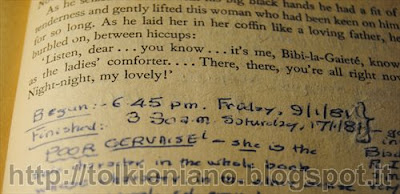 his big black hands he had a fit of
tenderness and gently lifted this woman who had been keen on him
for so long. As he laid her in her coffin like a loving father, he
burbled on, between hiccups:
'Listen, dear . . . you know . . . it's me, Bibi-la-Gaieté, know
as the ladies' comforter. . . . There, there, you're all right now
Night-night, my lovely!'
Begun:- 6 45 pm. Friday, 9/1/81}
Finished: 3 30 a.m. Saturday, 17/1/81}
POOR GERVAISE! - she is the
character in the whole book
http://tolkieniano.blogspot.it